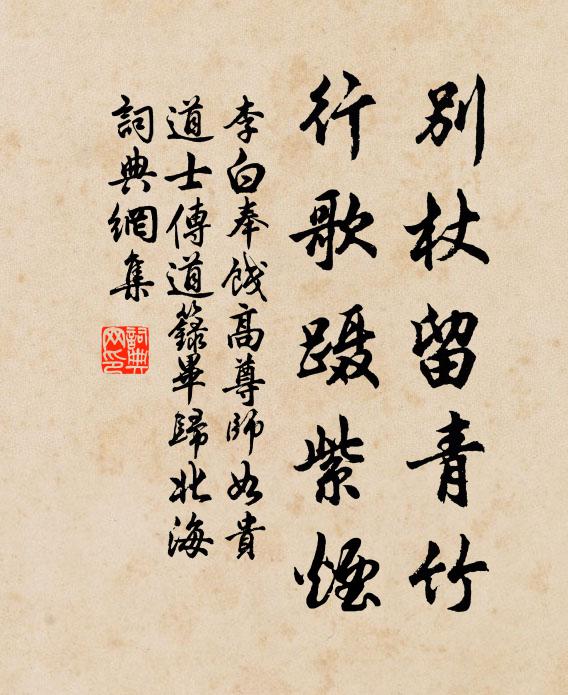 别杖留青竹
行歌蹑紫煙
李白奉餞高尊師如貴
道士傳道籙畢歸北海
詞典網集
詞典網印